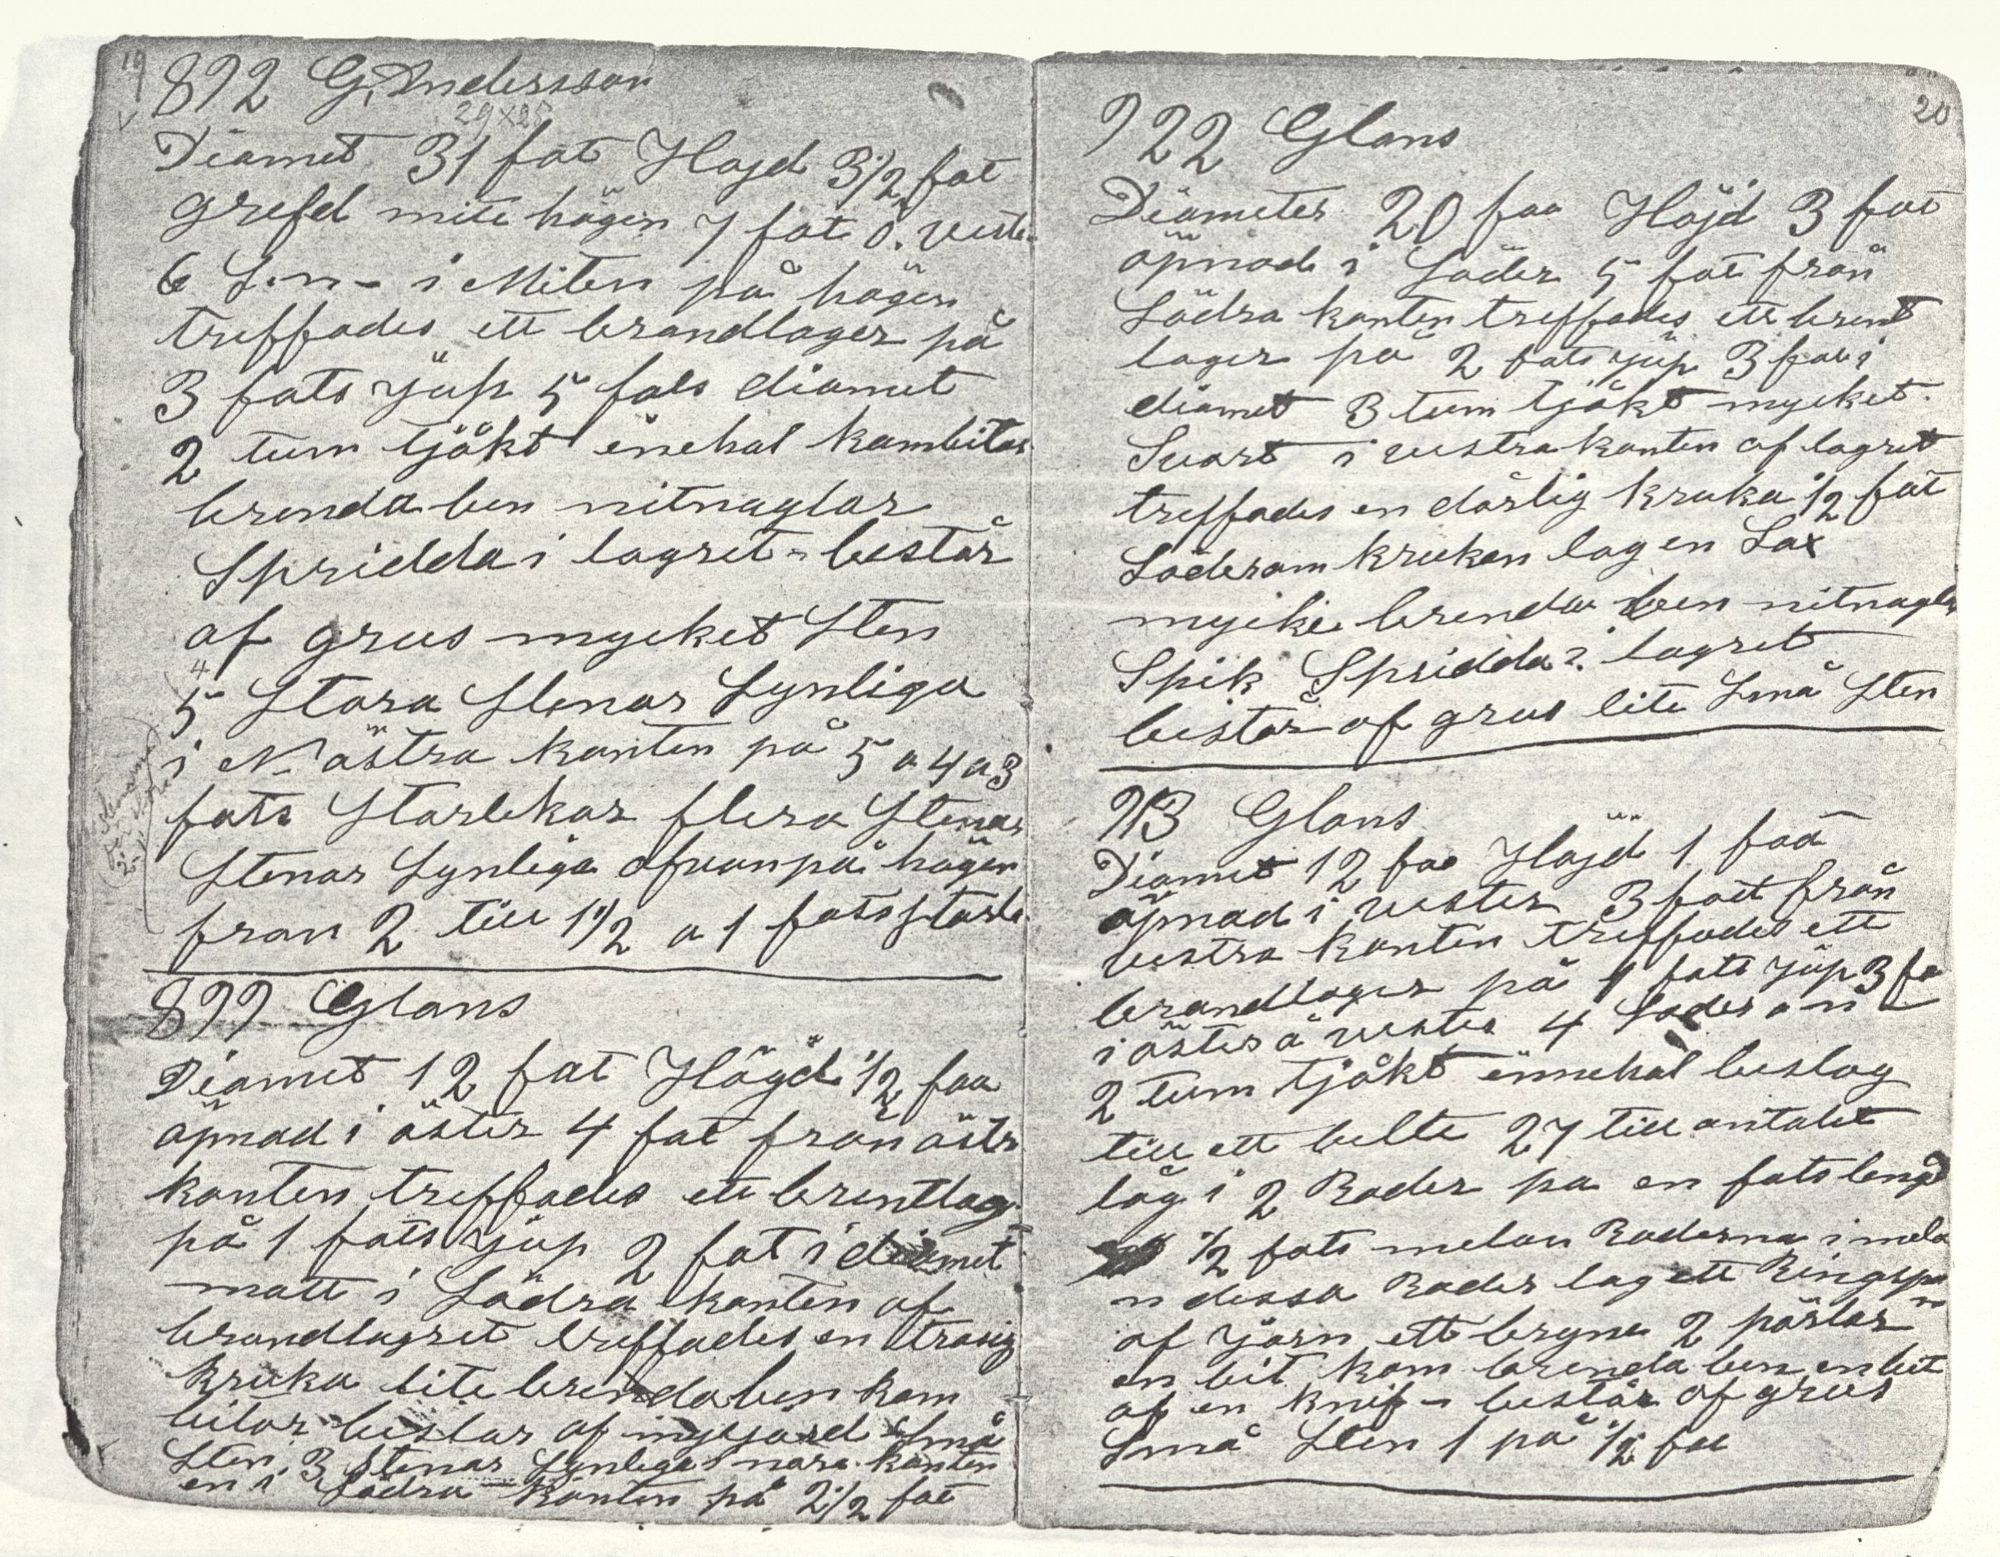 19
892 G. Andersson
29x28
Diamet 31 fot Högd 3 1/2 fot
grefd mite högen 7 fot ö. veste
6 S.n - i Miten på högen
treffades ett brandlager på
3 fots jup 5 fots diamet
2 tum tjökt inehol kambitar
brenda ben nitnaglar
Spridda i lagret - består
af grus mycket Sten
4
5 Stora Stenar Synliga
i N. östra kanten på 5 a 4 a 3
fots Storlekar flera Stenar
Stenar Synliga ofvanpå högen
fron 2 till 1 1/2 a 1 fots Storle
899 Glans
Diamet 12 fot Högd 1/2 foa
öpnad i öster 4 fot från östr
kanten treffades ett brentlag
på 1 fots jup 2 fot i diamet
matt i Södra kanten af
brandlagret treffades en trasig
kruka lite brenda ben kam
bitar bestar af mycjord Små
Sten 3 Stenar Synliga nära kanten
en i Södra kanten på 2 1/2 fot
20
922 Glans
Diameter 20 foa Höjd 3 fot
öpnad i Söder 5 fot från
Södra kanten treffades ett brent
lager på 2 fots jup 3 fot i
diamet 3 tum tjökt mycket
Svart i vestra kanten af lagret
treffades en dårlig kruka 1/2 fot
Söder om krukan lag en Sax
myike brenda ben nitnagla
Spik Spridda i lagret
består af grus lite Små Sten
913 Glans
Diamet 12 foa Höjd 1 foa
öpnad i vester 3 fot från
vestra kanten treffades ett
brandlager på 1 fots jup 3 fo
i öster å vester 4 Soder o n
2 tum tjökt ennehol beslag
till ett belte 27 till antalet
låg i 2 Rader pa en fots lengd
1/2 fots melan Raderna i mela
n dessa Rader lag ett Ringspen
af järn ett bryne 2 pärlar
en bit kam brenda ben en bit
af en knif - består af grus
Små Sten 1 på 1/2 fot